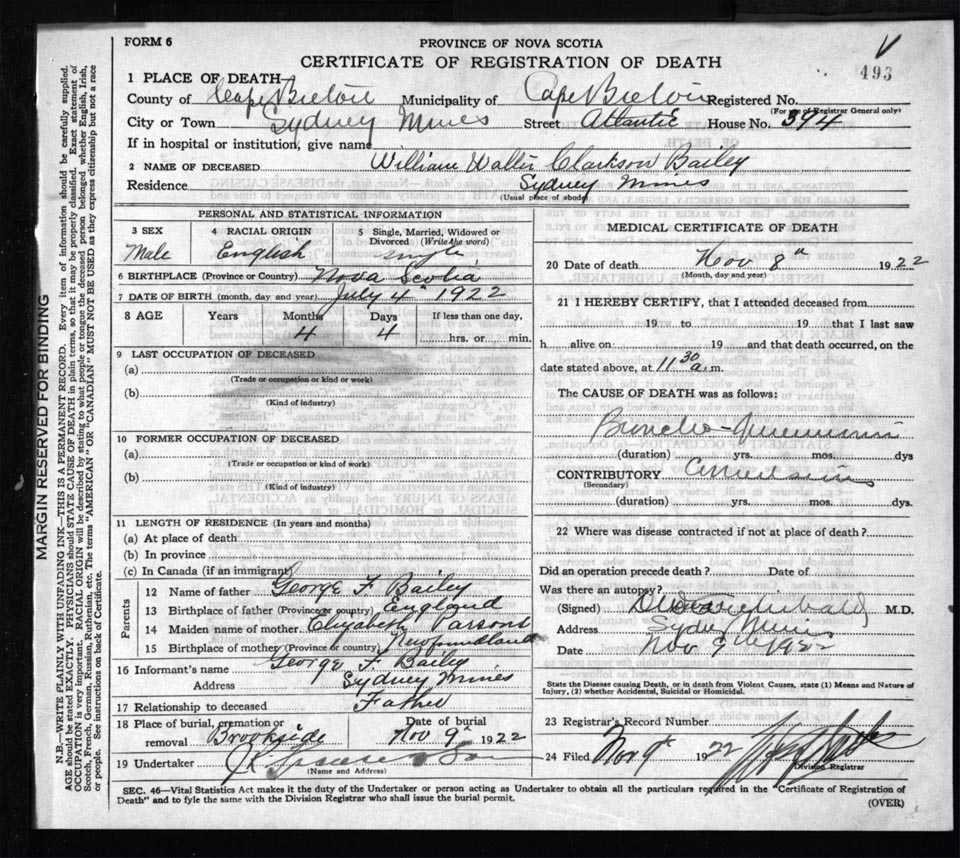 FORM 6
PROVINCE OF NOVA SCOTIA
CERTIFICATE OF REGISTRATION OF DEATH
493
1 PLACE OF DEATH
County of Cape Breton Municipality of Cape Breton Registered No.
(For use of Registrar General only)
City or Town Sydney Mines Street Atlantic House No. 394
If in hospital or institution, give name
2 NAME OF DECEASED William Walter Clarkson Bailey
Residence Sydney Mines
(Usual place of abode)
PERSONAL AND STATISTICAL INFORMATION
3 SEX 4 RACIAL ORIGIN 5 Single, Married, Widowed or
Divorced (Write the word)
Male English single
6 BIRTHPLACE (Province or Country) Nova Scotia
7 DATE OF BIRTH (month, day and year) July 4" 1922
8 AGE Years Months Days If less than one day,
4 4 hrs. or min.
9 LAST OCCUPATION OF DECEASED
(a)
(Trade or occupation or kind or work)
(b)
(Kind of industry)
10 FORMER OCCUPATION OF DECEASED
(a)
(Trade or occupation or kind or work)
(b)
(Kind of industry)
11 LENGTH OF RESIDENCE (In years and months)
(a) At place of death
(b) In province
(c) In Canada (if an immigrant)
Parents
12 Name of father George F Bailey
13 Birthplace of father (Province or country) England
14 Maiden name of mother Elizabeth Parsons
15 Birthplace of mother (Province or country) Newfoundland
16 Informant's name George F Bailey
Address Sydney Mines
17 Relationship to deceased Father
18 Place of burial, cremation or Date of burial
removal Brookside Nov 9" 1922
19 Undertaker & Son
(Name and Address)
MEDICAL CERTIFICATE OF DEATH
20 Date of death Nov 8" 1922
(Month, day and year)
21 I HEREBY CERTIFY, that I attended deceased from
19 to 19 that I last saw
h alive on 19 and that death occurred, on the
date stated above, at 11 30 a.m.
The CAUSE OF DEATH was as follows:
Broncho-Pneumonia
(duration) yrs. mos. dys
CONTRIBUTORY Convulsions
(Secondary)
(duration) yrs. mos. dys.
22 Where was disease contracted if not at place of death?
Did an operation precede death? Date of
Was there an autopsy?
(Signed) Archibald M.D.
Address Sydney Mines
Date Nov 9th 1922
State the Disease causing Death, or in death from Violent Causes, state (1) Means and Nature of
Injury, (2) whether Accidental, Suicidal or Homicidal.
23 Registrar's Record Number
24 Filed Nov 9" 1922
Division Registrar
SEC. 46—Vital Statistics Act makes it the duty of the Undertaker or person acting as Undertaker to obtain all the particulars required in the "Certificate of Registration of
Death" and to fyle the same with the Division Registrar who shall issue the burial permit.
(OVER)
MARGIN RESERVED FOR BINDING
N.B.—WRITE PLAINLY WITH UNFADING INK—THIS IS A PERMANENT RECORD. Every item of information should be carefully supplied.
AGE should be stated EXACTLY. PHYSICIANS should STATE CAUSE OF DEATH in plain terms, so that it may be properly classified. Exact statement of
OCCUPATION is very important. RACIAL ORIGIN will be described by stating to what people or tongue the deceased person belonged whether English, Irish,
Scotch, French, German, Russian, Ruthenian, etc. The terms "AMERICAN" OR "CANADIAN" MUST NOT BE USED as they express citizenship but not a race
or people. See instructions on back of Certificate.